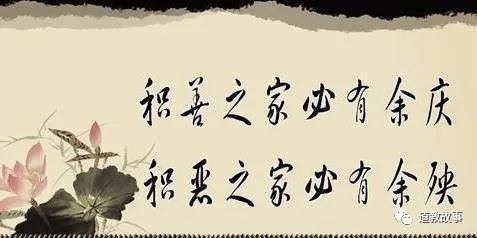 积善之家必有余庆
积恶之家必有余殃
道教故事